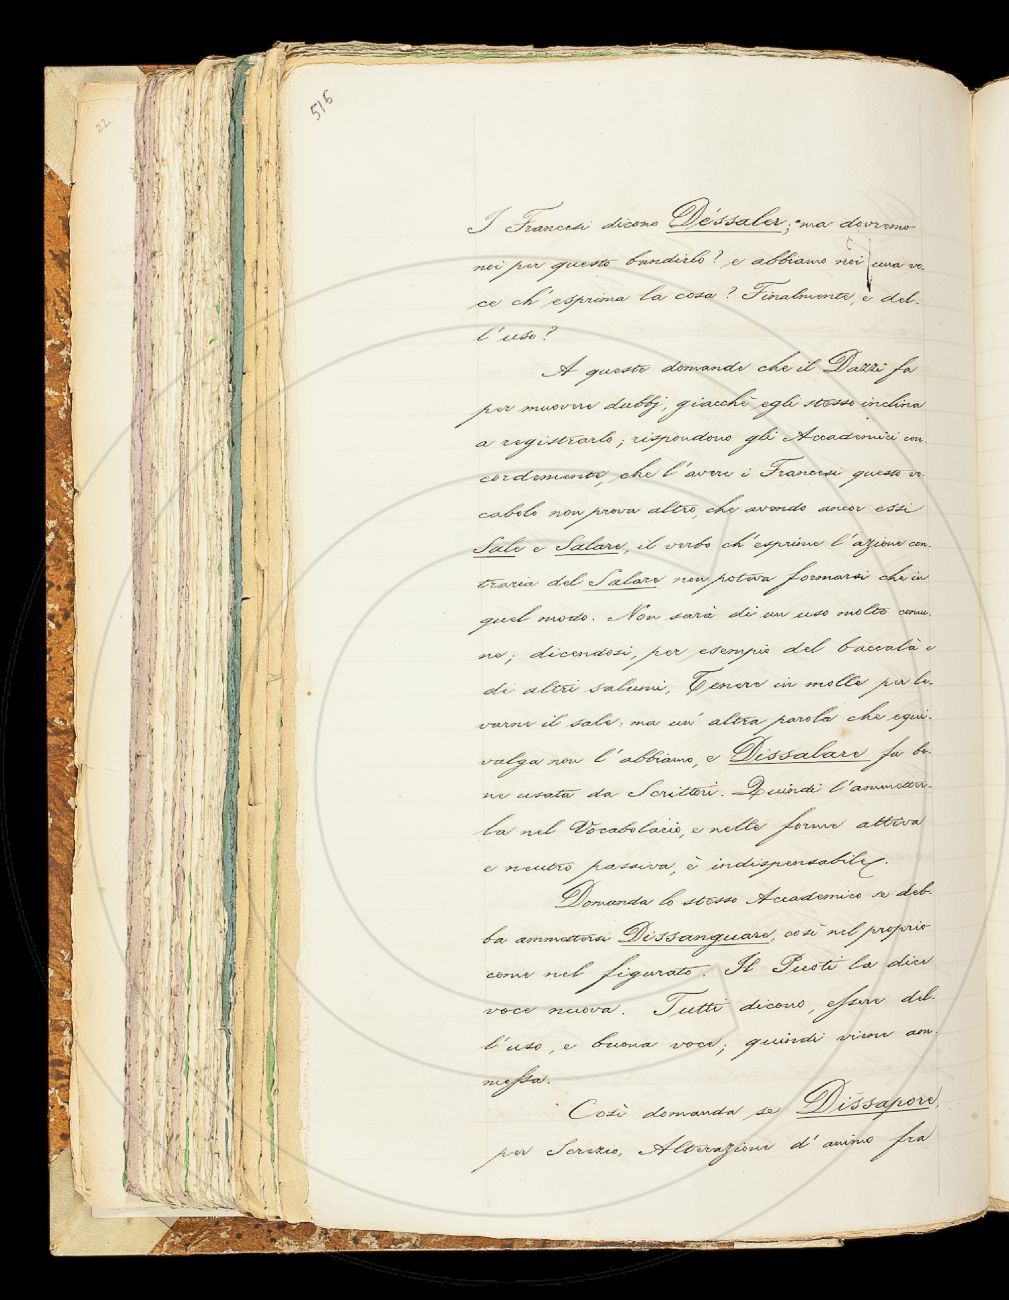 22
516
I Francesi dicono Déssaler; ma dovremo
noi per questo bandirlo? e abbiamo noi una vo-
ce ch'esprima la cosa? Finalmente, è del-
l'uso?
A queste domande che il Dazzi fa
per muovere dubbj, giacchè egli stesso inclina
a registrarlo; rispondono gli Accademici con-
cordemente, che l'avere i Francesi questo vo-
cabolo non prova altro, che avendo ancor essi
Sale e Salare, il verbo ch'esprime l'azione con-
traria del Salare non poteva formarsi che in
quel modo. Non sarà di un uso molto comu-
ne; dicendosi, per esempio del baccalà e
di altri salumi, Tenere in molle per le-
varne il sale: ma un'altra parola che equi-
valga non l'abbiamo, e Dissalare fu be-
ne usata da Scrittori. Quindi l'ammetter-
la nel Vocabolario, e nelle forme attiva
e neutro passiva, è indispensabile.
Domanda lo stesso Accademico se deb-
ba ammettersi Dissanguare, così nel proprio
come nel figurato. Il Puoti la dice
voce nuova. Tutti dicono, essere del-
l'uso, e buona voce; quindi viene am-
messa.
Così domanda se Dissapore,
per Screzio, Alterazione d'animo fra